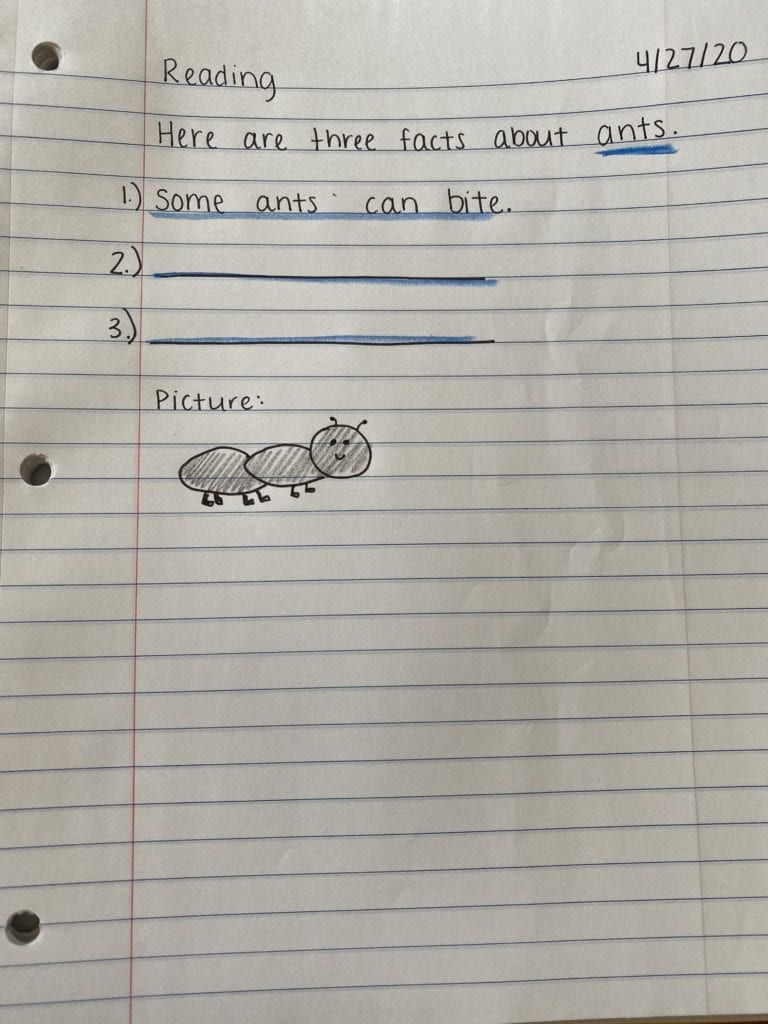 Reading 4/27/20
Here are three facts about ants.
1.) Some ants can bite.
2.)
3.)
Picture: